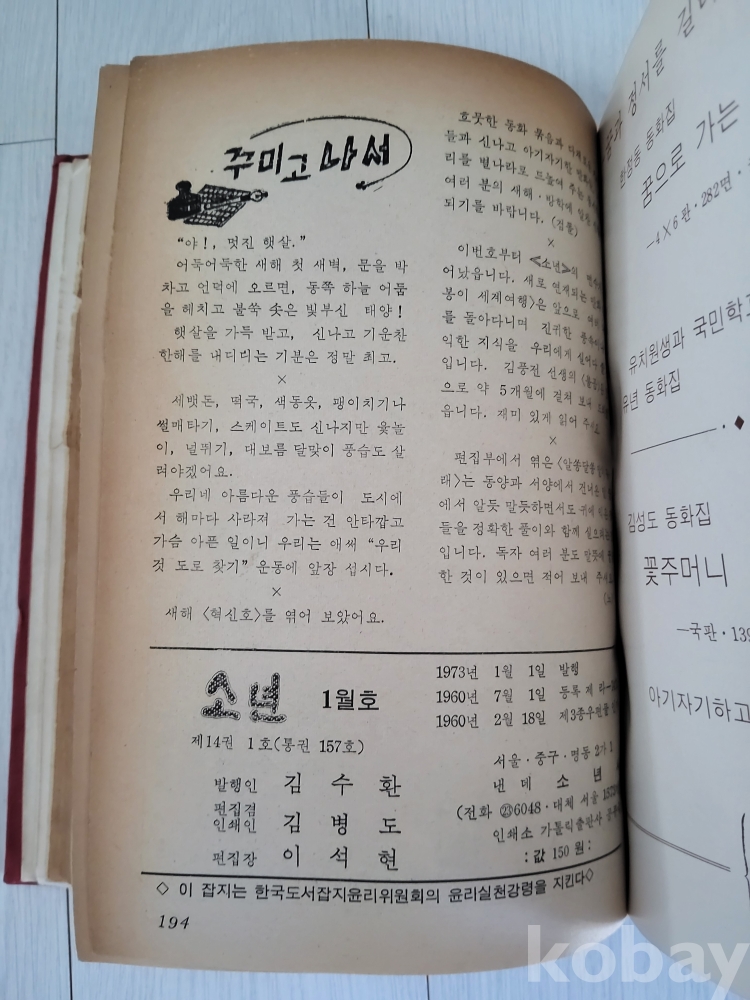 꾸미고 나서
"야!, 멋진 햇살."
어둑어둑한 새해 첫 새벽, 문을 박
차고 언덕에 오르면, 동쪽 하늘 어둠
을 헤치고 불쑥 솟은 빛부신 태양!
햇살을 가득 받고, 신나고 기운찬
한해를 내디디는 기분은 정말 최고.
×
세뱃돈, 떡국, 색동옷, 팽이치기나
썰매타기, 스케이트도 신나지만 윷놀
이, 널뛰기, 대보름 달맞이 풍습도 살
려야겠어요.
우리네 아름다운 풍습들이 도시에
서 해마다 사라져 가는 건 안타깝고
가슴 아픈 일이니 우리는 애써 "우리
것 도로 찾기" 운동에 앞장 섭시다.
×
새해 〈혁신호〉를 엮어 보았어요.
흐뭇한 동화 묶음과
들과 신나고 아기자기한
리를 별나라로 드높여 주는
여러 분의 새해·방학에
되기를 바랍니다.
×
이번호부터 《소년》의
어났읍니다. 새로 연재되는
봉이 세계여행〉은 앞으로
를 돌아다니며 진귀한
익한 지식을 우리에게
입니다. 김풍전 선생의
으로 약 5개월에 걸쳐 보내
읍니다. 재미 있게 읽어 주세요
×
편집부에서 엮은 〈알쏭달쏭
래〉는 동양과 서양에서
에서 알듯 말듯하면서도 귀에
들을 정확한 풀이와 함께
입니다. 독자 여러 분도
한 것이 있으면 적어 보내
소년 1월호
제14권 1호(통권 157호)
발행인 김수환
편집겸
인쇄인 김병도
편집장 이석현
1973년 1월 1일 발행
1960년 7월 1일 등록 제 라—
1960년 2월 18일 제3종우편물
서울·중구·명동 2가 1
낸 데 소년
(전화 ㉓6048·대체 서울
인쇄소 가톨릭출판사
:값 150원:
◇ 이 잡지는 한국도서잡지윤리위원회의 윤리실천강령을 지킨다◇
194
정서를
동화집
꿈으로 가는
—4×6판·282면·
유치원생과 국민학교
유년 동화집
김성도 동화집
꽃주머니
—국판·139
아기자기하고
kobay